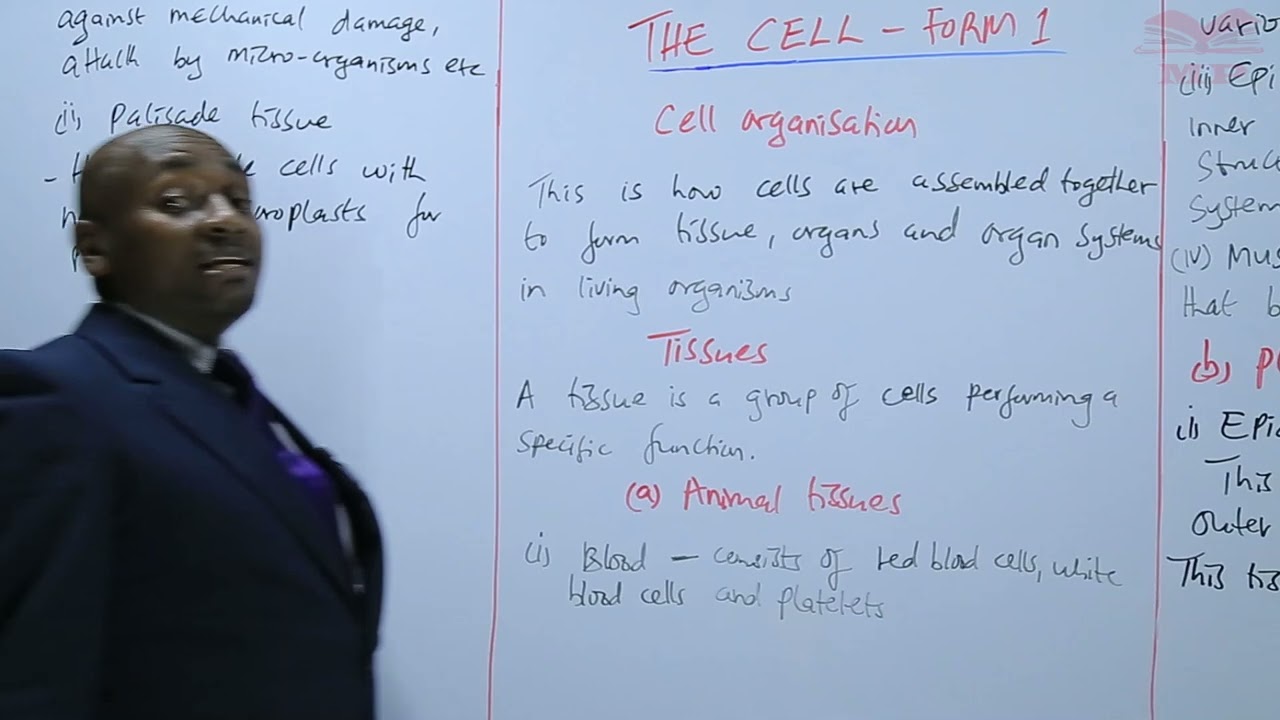 against mechanical damage,
attack by micro-organisms etc
(ii) Palisade tissue
- cells with
for
THE CELL – FORM 1
Cell organisation
This is how cells are assembled together
to form tissue, organs and organ systems
in living organisms
Tissues
A tissue is a group of cells performing a
specific function.
(a) Animal tissues
(i) Blood – consists of red blood cells, white
blood cells and platelets
(iii) Epi
inner
Struc
System
(iv) Mus
that b
(b) P
(i) Epi
This
Outer
This tis